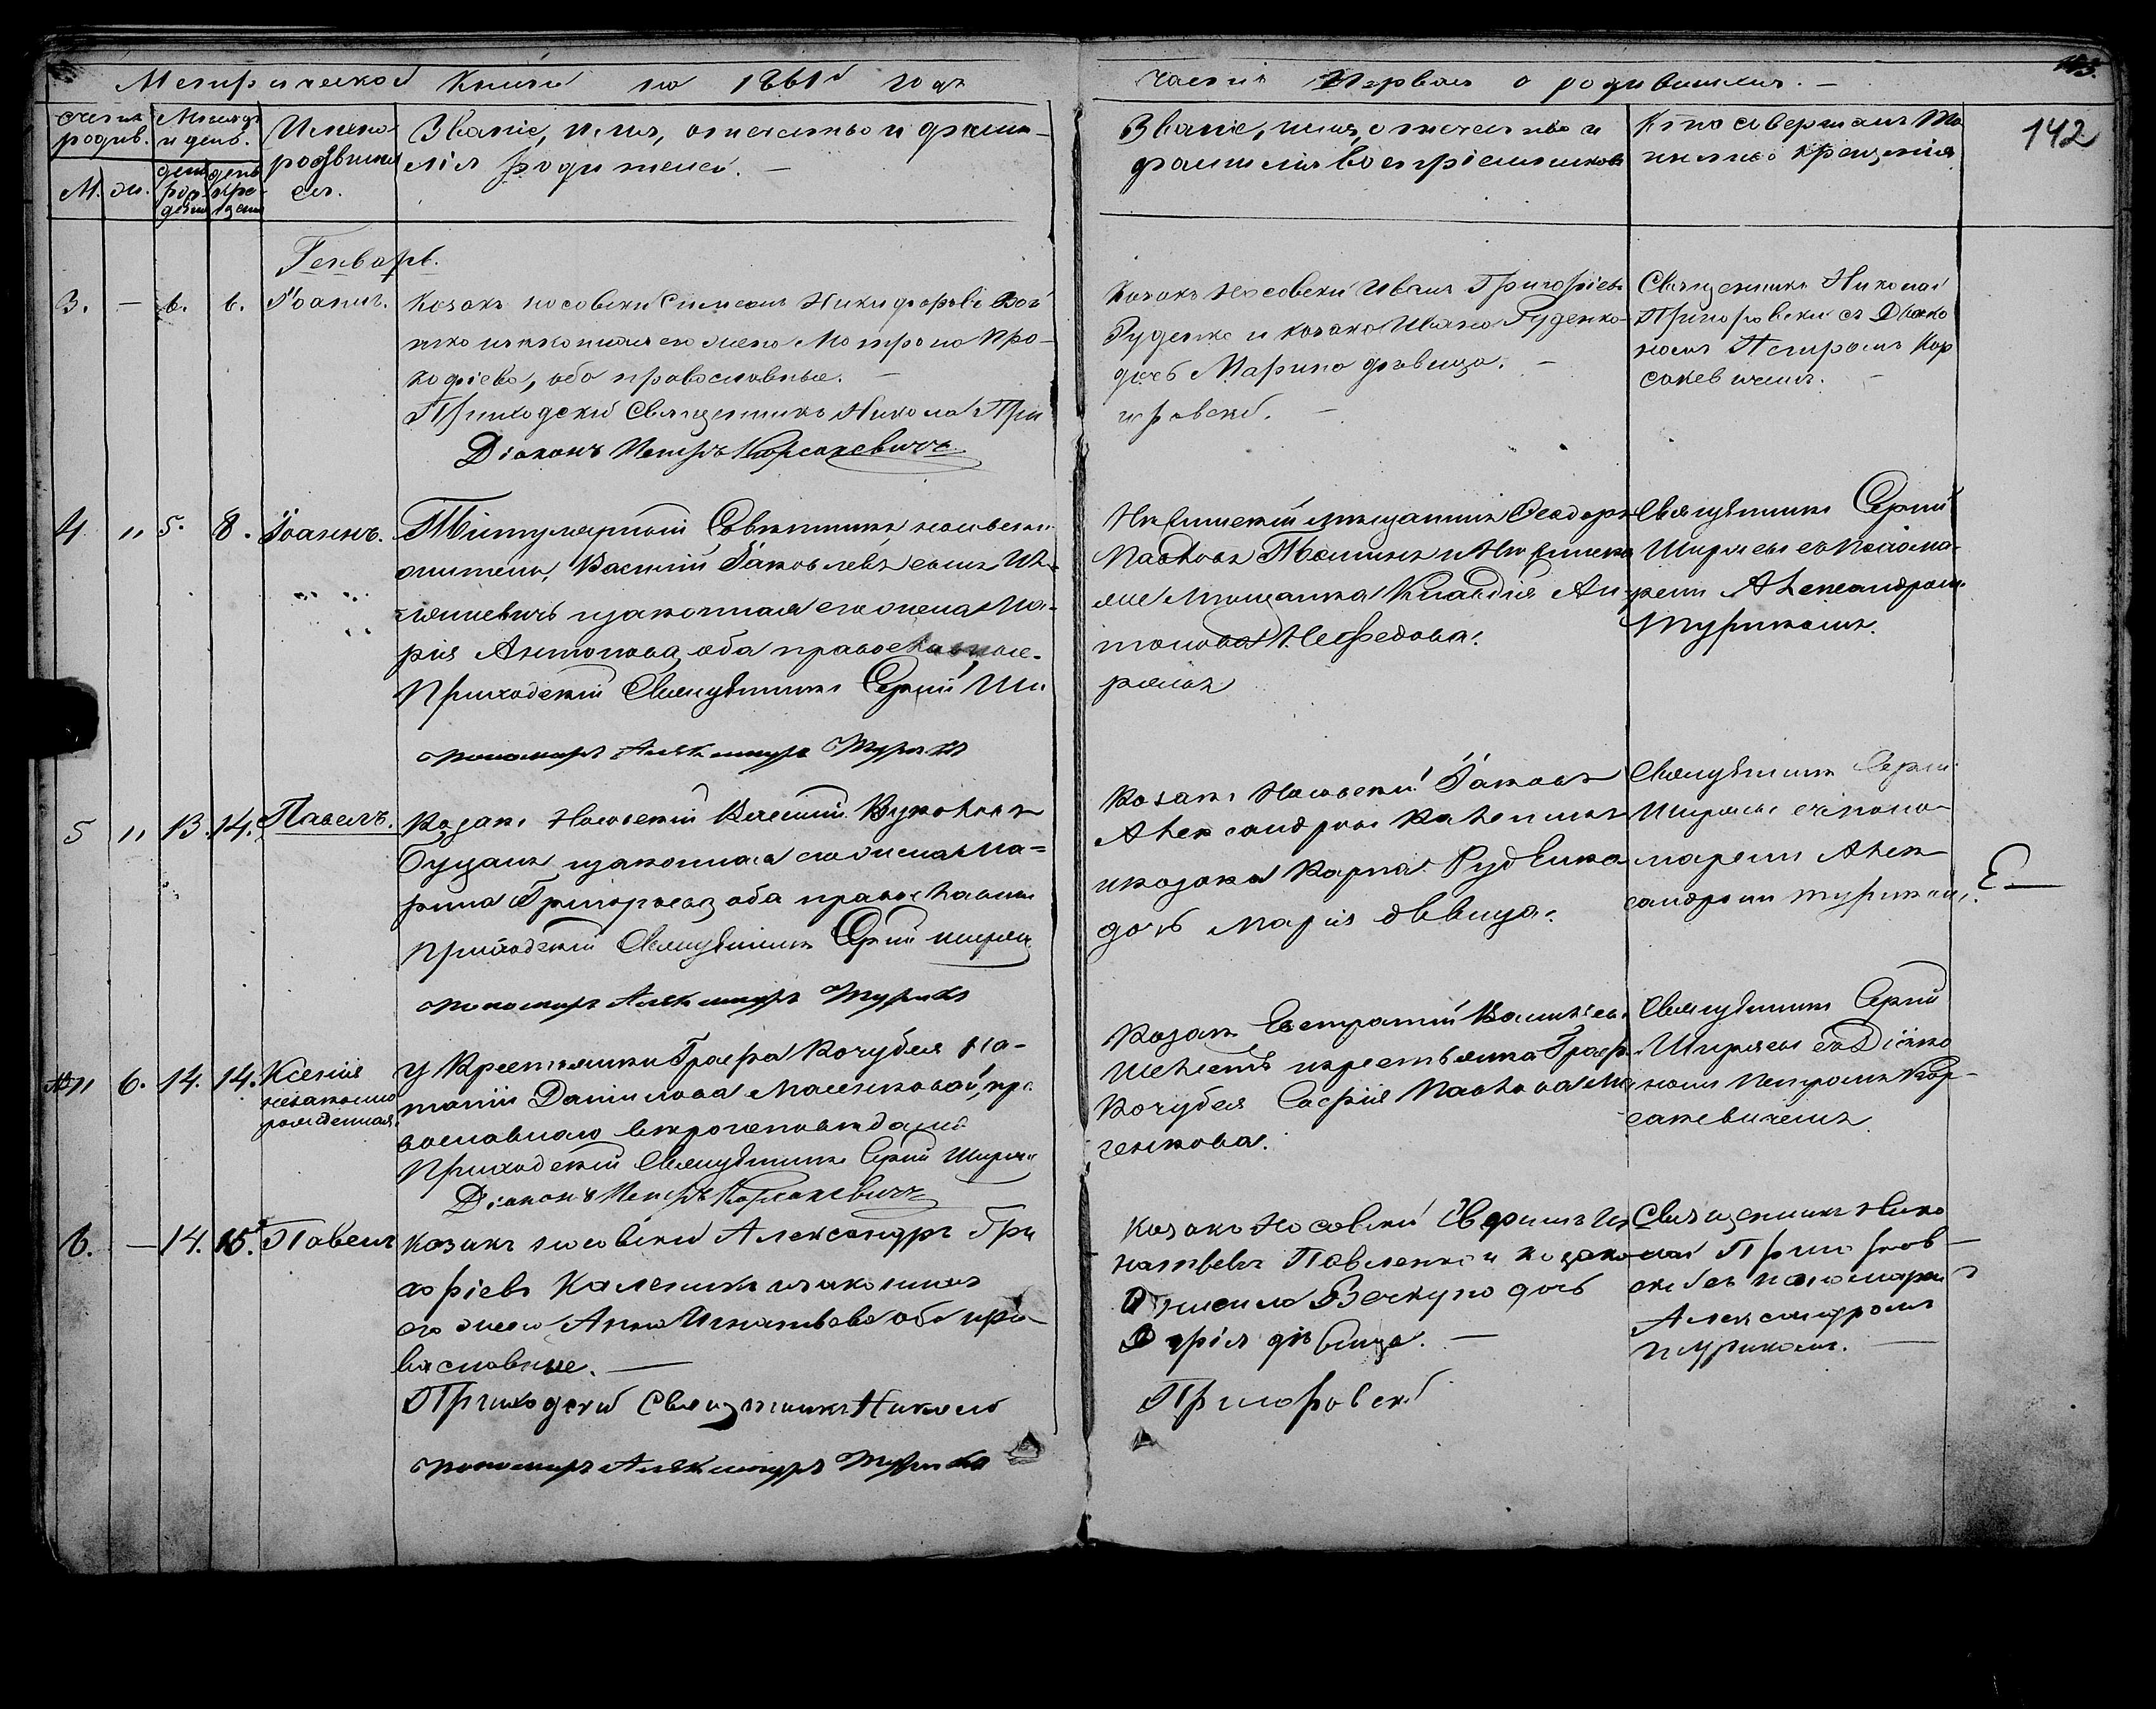 Метрической Книги на 1861й годъ
части Первая о родившихся. —
142
счетъ родив.
М. ж.
Месяцъ и день.
день рождения
день крещения
Имена родившихся.
Званіе, имя, отечество и фами-
лія родителей. —
Званіе, имя, отечество и
фамилія воспріемниковъ
Кто совершалъ Та
инство крещенія
Генварь.
3. — 6. 6. Іоаннъ.
Козакъ носовскій Симеонъ Никифоровъ
и законная его жена Матрона Про-
кофіева, оба православные. —
Приходскій Священникъ Николай При
Діаконъ Петръ Корсакевичъ
Козакъ Носовскій Иванъ Григоріевъ
Руденко и козака Ивана Руденко
дочь Марина дѣвица. —
горовскій. —
Священникъ Николай
Пригоровскій съ Діако
номъ Петромъ Кор
сакевичемъ. —
4 " 5. 8. Іоаннъ.
Титулярный Совѣтникъ
Василій Іаковлевъ сынъ
и законная его жена Ма-
рія Антонова, оба православные.
Приходскій Священникъ Сергій Ши
пономарь Александръ Турикъ
Нѣжинскій мѣщанинъ Ѳеодоръ
Павловъ и Нѣжинска
мѣщанка Клавдія Ан-
тонова Нефедова.
ряевъ
Священникъ Сергій
Ширяевъ съ Понома-
ремъ Александромъ
Турикомъ.
5 " 13. 14. Павелъ.
Козакъ Носовскій Василій
Буцанъ и законная его жена Ма-
рина Григорьева, оба православные
Приходскій Священникъ Сергій Ширяевъ
пономарь Александръ Турикъ
Козакъ Носовскій Іаковъ
Александровъ Каленикъ
и козака Карпа Руденка
дочь Марія дѣвица.
Священникъ Сергій
Ширяевъ съ поно-
маремъ Алек-
сандромъ Турикомъ.
" 6. 14. 14. Ксенія
незаконно
рожденная.
У Крестьянки Графа Кочубея На-
таліи Даниловой пра
вославнаго вѣроисповѣданія
Приходскій Священникъ Сергій Ширяевъ
Діаконъ Петръ Корсакевичъ
Козакъ Евстратій Васильевъ
Шепель и крестьянка Графа
Кочубея Софія Павлова Ма
ченкова.
Священникъ Сергій
Ширяевъ съ Діако
номъ Петромъ Кор-
сакевичемъ.
6. — 14. 15. Павелъ
Козакъ носовскій Александръ Гри
горіевъ Каленикъ и законная
его жена Анна Игнатьева оба пра-
вославные. —
Приходскій Священникъ Николай
пономарь Александръ Турикъ
Козакъ Носовскій Ефимъ Иг
натьевъ Павленко и козака
дочь
дѣвица. —
Пригоровскій
Священникъ Нико
лай Пригоров-
скій съ пономаремъ
Александромъ
Турикомъ. —